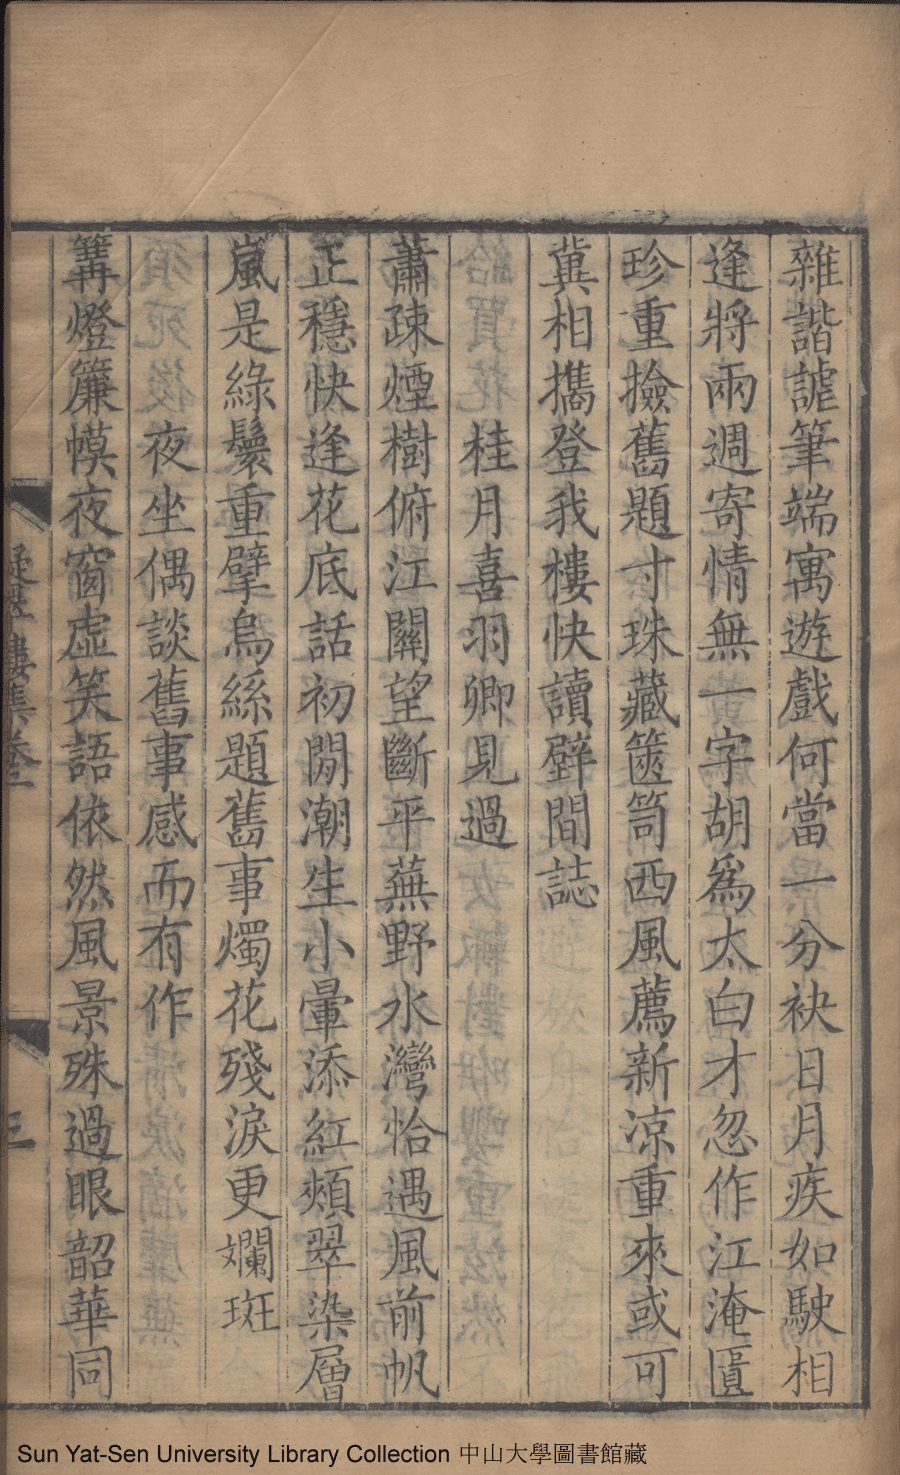 雜諧謔筆端寓遊戲何當一分袂日月疾如駛相
逢將兩週寄情無一字胡爲太白才忽作江淹匱
珍重撿舊題寸珠藏篋笥西風薦新涼重來或可
冀相攜登我樓快讀壁間誌
桂月喜羽卿見過
蕭疎煙樹俯江關望斷平蕪野水灣恰遇風前帆
正穩快逢花底話初閒潮生小暈添紅頰翠染層
嵐是綠鬟重擘烏絲題舊事燭花殘淚更斕斑
夜坐偶談舊事感而有作
篝燈簾幙夜窗虛笑語依然風景殊過眼韶華同
樓集卷
三
Sun Yat-Sen University Library Collection 中山大學圖書館藏